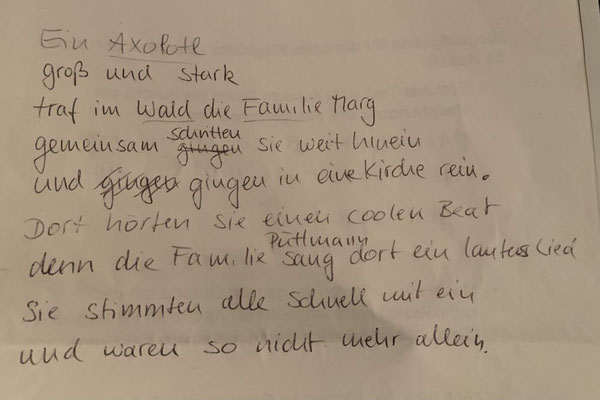 Ein Axolotl
groß und stark
traf im Wald die Familie Marg
gemeinsam schritten gingen sie weit hinein
und gingen gingen in eine Kirche rein.
Dort hörten sie einen coolen Beat
denn die Familie Püttmann sang dort ein lautes Lied
Sie stimmten alle schnell mit ein
und waren so nicht mehr allein.